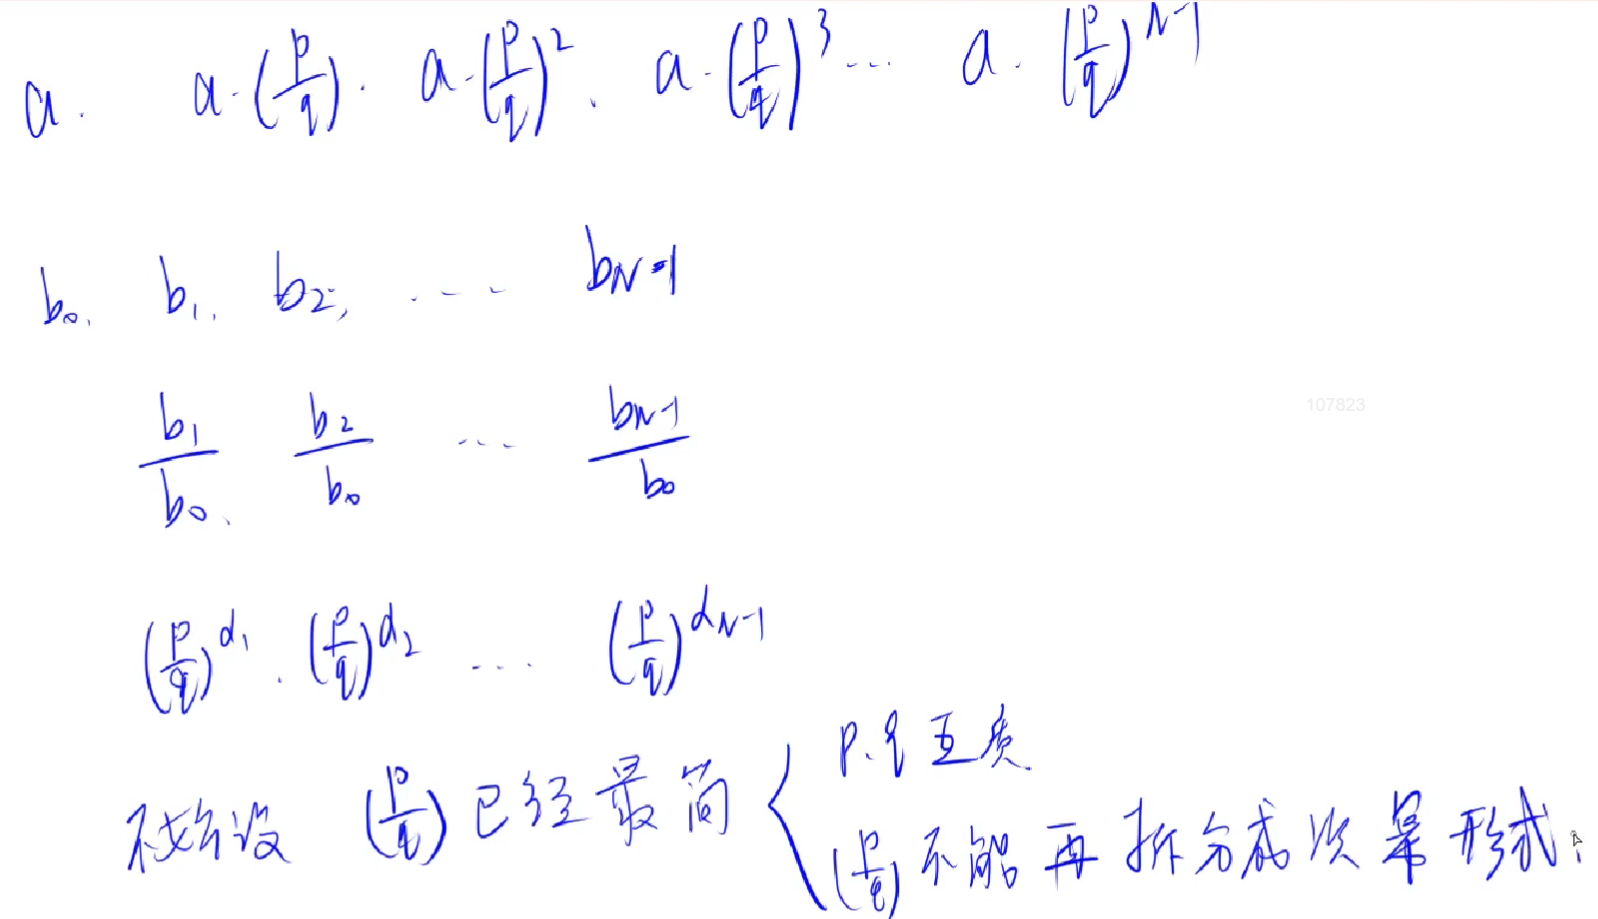 a. a·(p/q). a·(p/q)^2、 a·(p/q)^3 ... a·(p/q)^{N-1}
b_0、 b_1、 b_2, ... b_{N-1}
b_1/b_0、 b_2/b_0 ... b_{N-1}/b_0
107823
(p/q)^{α_1}、 (p/q)^{α_2} ... (p/q)^{α_{N-1}}
不妨设 (p/q) 已经最简 { p.q 互质
(p/q) 不能再拆分成次幂形式.